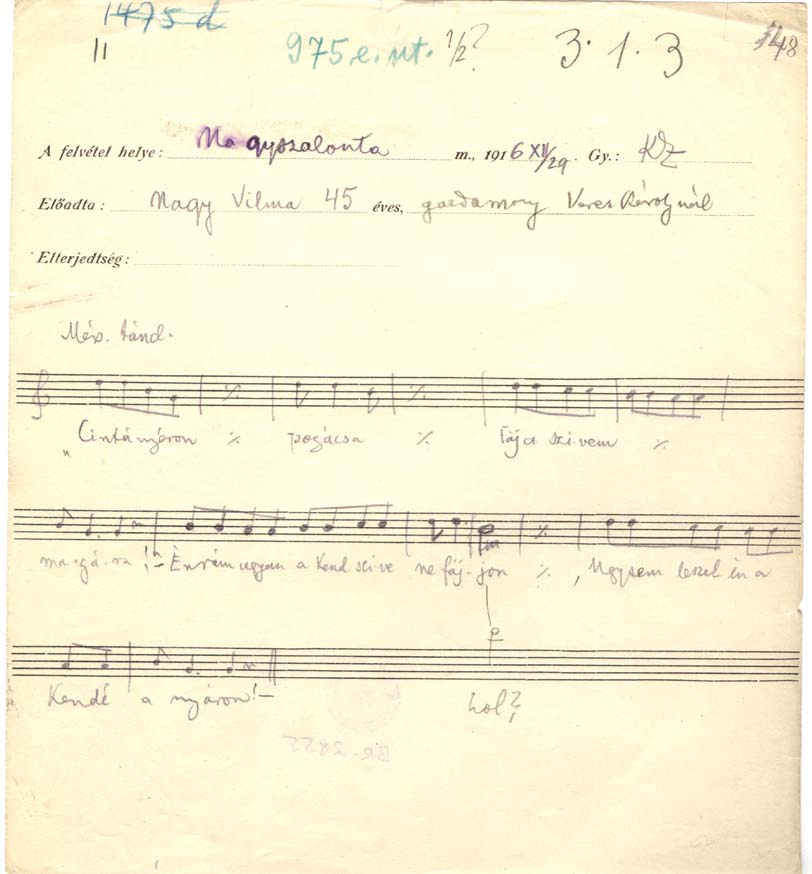 1475 d
11 975 e. nt. 1/2? 3·1·3 48
A felvétel helye: Nagyszalonta m., 1916 XII/29. Gy.: KZ
Előadta: Nagy Vilma 45 éves, gazdasszony Veres Károlynál
Elterjedtség:
Mérs. tánd.
„Cintányéron ٪ pogácsa ٪ Fáj a szi-vem ٪
ma-gá-ra!" - Énrám ugyan a Kend szi-ve ne fáj-jon ٪, Ugysem leszel én a
Kendé a nyáron! - hol?